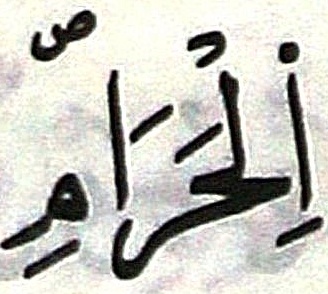 اِ۬لْحَرَامِۖ